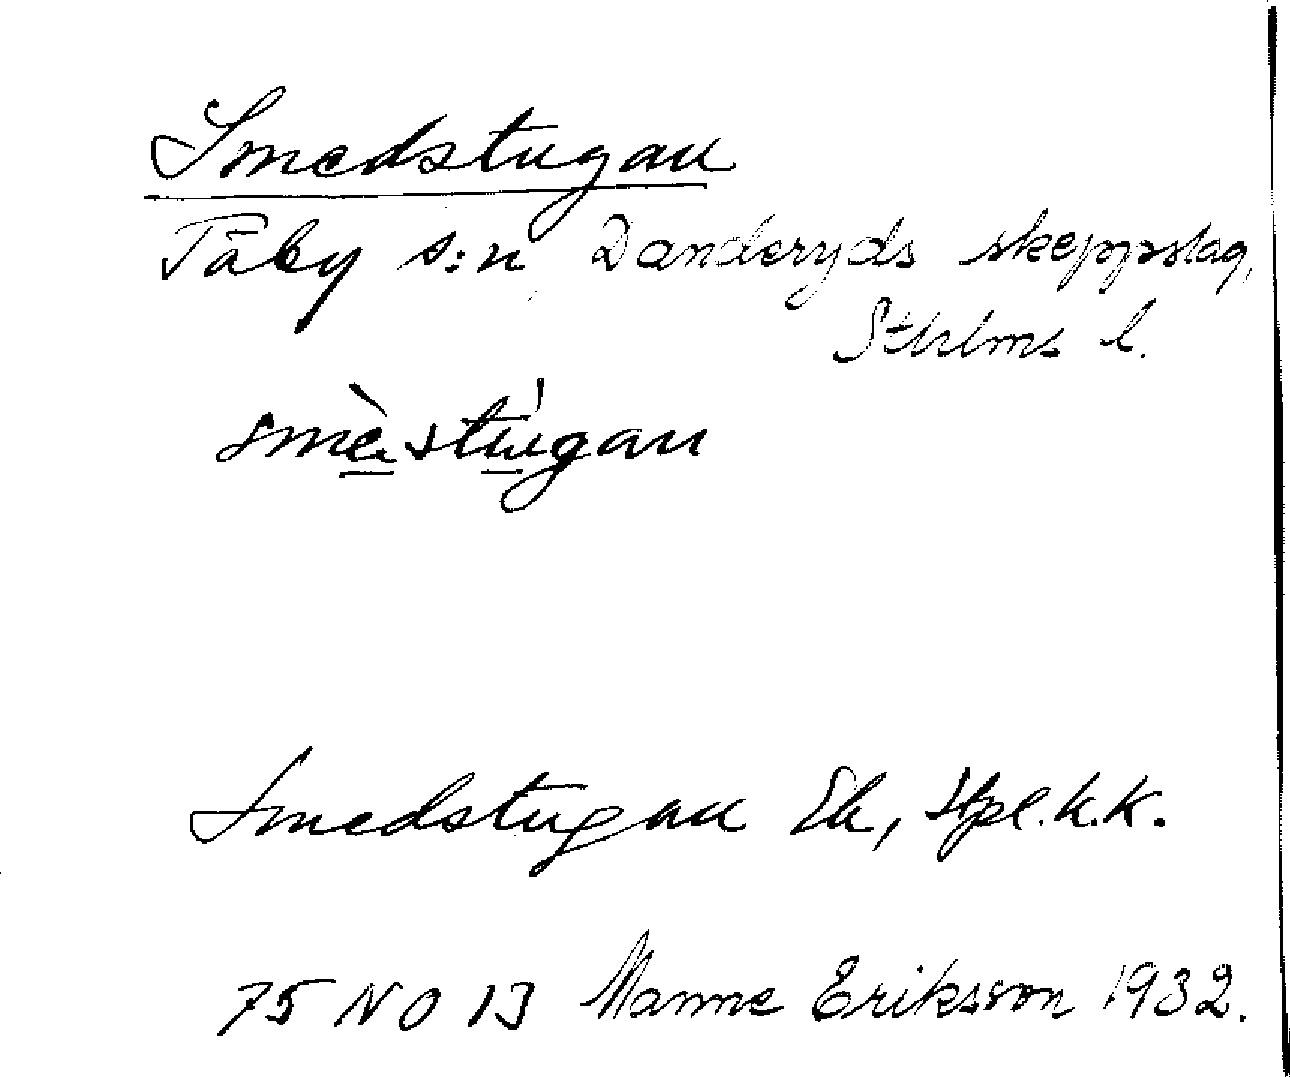 Smedstugan
Täby s:n Danderyds skeppslag,
Sthlms l.
smèstúgan
Smedstugan Eb, Hpl.k.k.
75 NO 13 Manne Eriksson 1932.